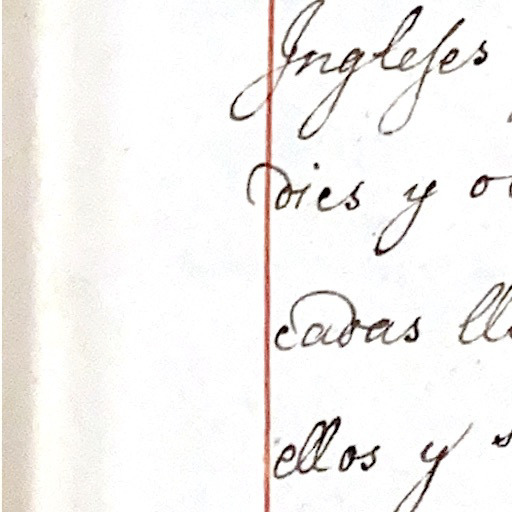 Ingleses
dies y
cadas
ellos y